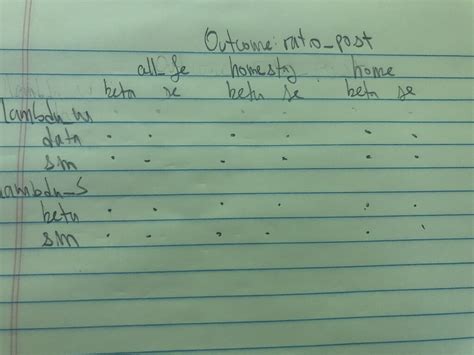 Outcome: ratio_post
all_fe homestay home
beta se beta se beta se
lambda_m
data . . . . . .
sm . . . . . .
lambda_s
beta . . . . . .
sm . . . . . .